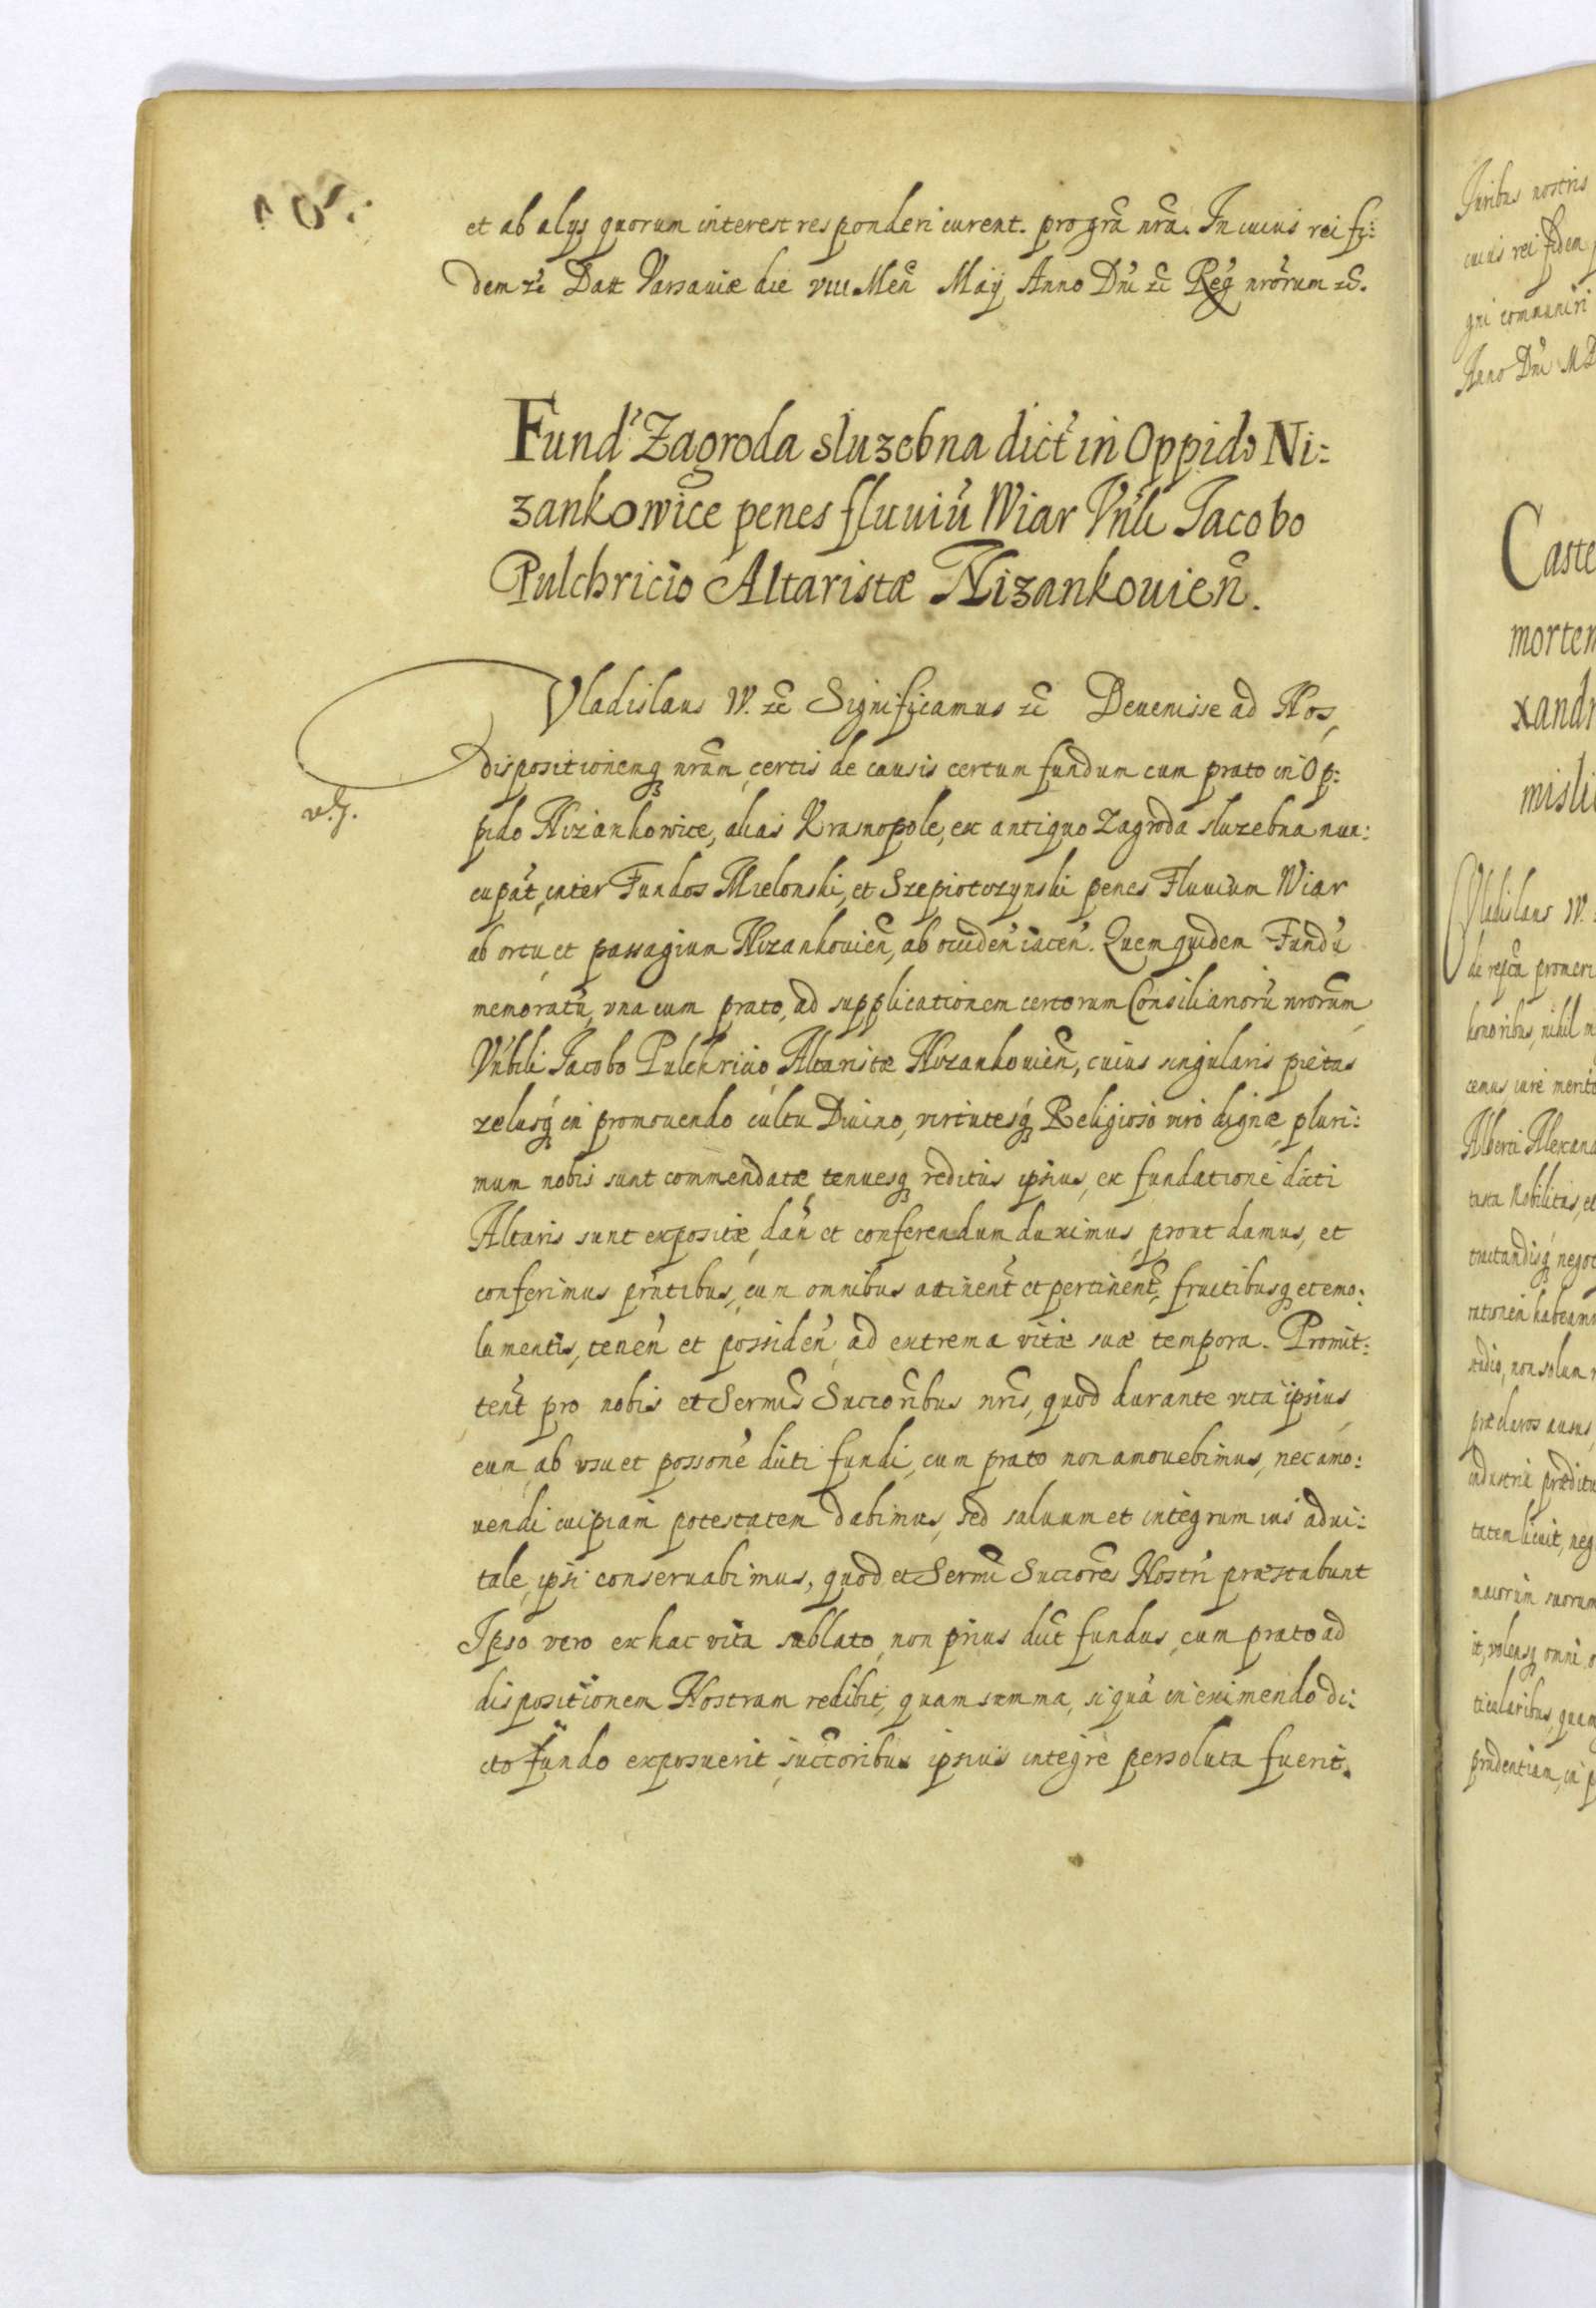 et ab alys quorum interest responderi curent. pro gra᷃ nra᷃. In cuius rei fi:
dem zc᷃ Datt Varsauiæ die VIII Men᷃ Maÿ Anno Dni᷃ zc᷃ Reg᷃ nrorum᷃ zc᷃.
Fund' Zagroda sluzebna dict' in Oppido Ni:
zankowice penes fluuiu᷃ Wiar Vnli᷃ Jacobo
Pulchricio Altaristæ Nizankouien᷃.
Vladislaus IV. zc᷃ Significamus zc᷃ Deuenisse ad Nos,
dispositionemq nram᷃, certis de causis certum fundum cum prato in Op:
pido Nizankowice, alias Krasnopole, ex antiquo Zagroda sluzebna nun:
cupat᷃, inter Fundos Mielonski, et Szepiotczynski penes Fluuium Wiar
ab ortu, et passagium Nizankouien᷃, ab occiden᷃ iacen᷃. Quem quidem Fundu᷃
memoratu᷃, vna cum prato, ad supplicationem certorum Consiliarioru᷃ nrorum᷃,
Vnbili᷃ Jacobo Pulchricio Altaristæ Nizankouien᷃, cuius singularis pietas
zelusq in promouendo cultu Diuino, virtutesq Religioso viro dignæ, pluri:
mum nobis sunt commendatæ, tenuesq reditus ipsius, ex fundatione dicti
Altaris sunt expositæ, dan᷃ et conferendum duximus, prout damus, et
conferimus pntibus᷃, cum omnibus attinent᷃ et pertinent᷃, fructibusq et emo:
lumentis, tenen᷃ et possiden᷃ ad extrema vitæ suæ tempora. Promit:
tent᷃ pro nobis et Sermis᷃ Succoribus᷃ nris᷃, quod durante vita ipsius,
eum, ab vsu et possone᷃ dicti fundi, cum prato non amouebimus, nec amo:
uendi cuipiam potestatem dabimus, sed saluum et integrum ius adui:
tale, ipsi conseruabimus, quod et Sermi᷃ Succores᷃ Nostri præstabunt
Ipso vero ex hac vita sublato, non prius dict᷃ fundus, cum prato ad
dispositionem Nostram redibit, quam summa, si qua᷃ in eximendo di:
cto fundo exposuerit, succoribus᷃ ipsius integre persoluta fuerit.
Juribus nostris
cuius rei fidem
gni communiri
Anno Dni᷃ MD
Caste
morten
xandr
misli
Vladislaus IV.
honoribus, nihil
cemus iure merito
Alberti Alexand
tractandisq negot
non solum
præclaros ausus,
industria præditu
tatem licuit, neg
maiorum suorum
it, volensq omni
ticularibus, quam
prudentiam, in p